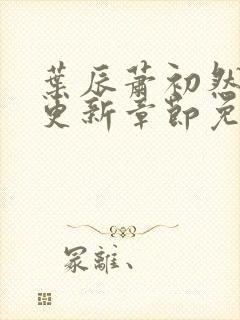 葉辰蕭初然
更新章節免
冢離、